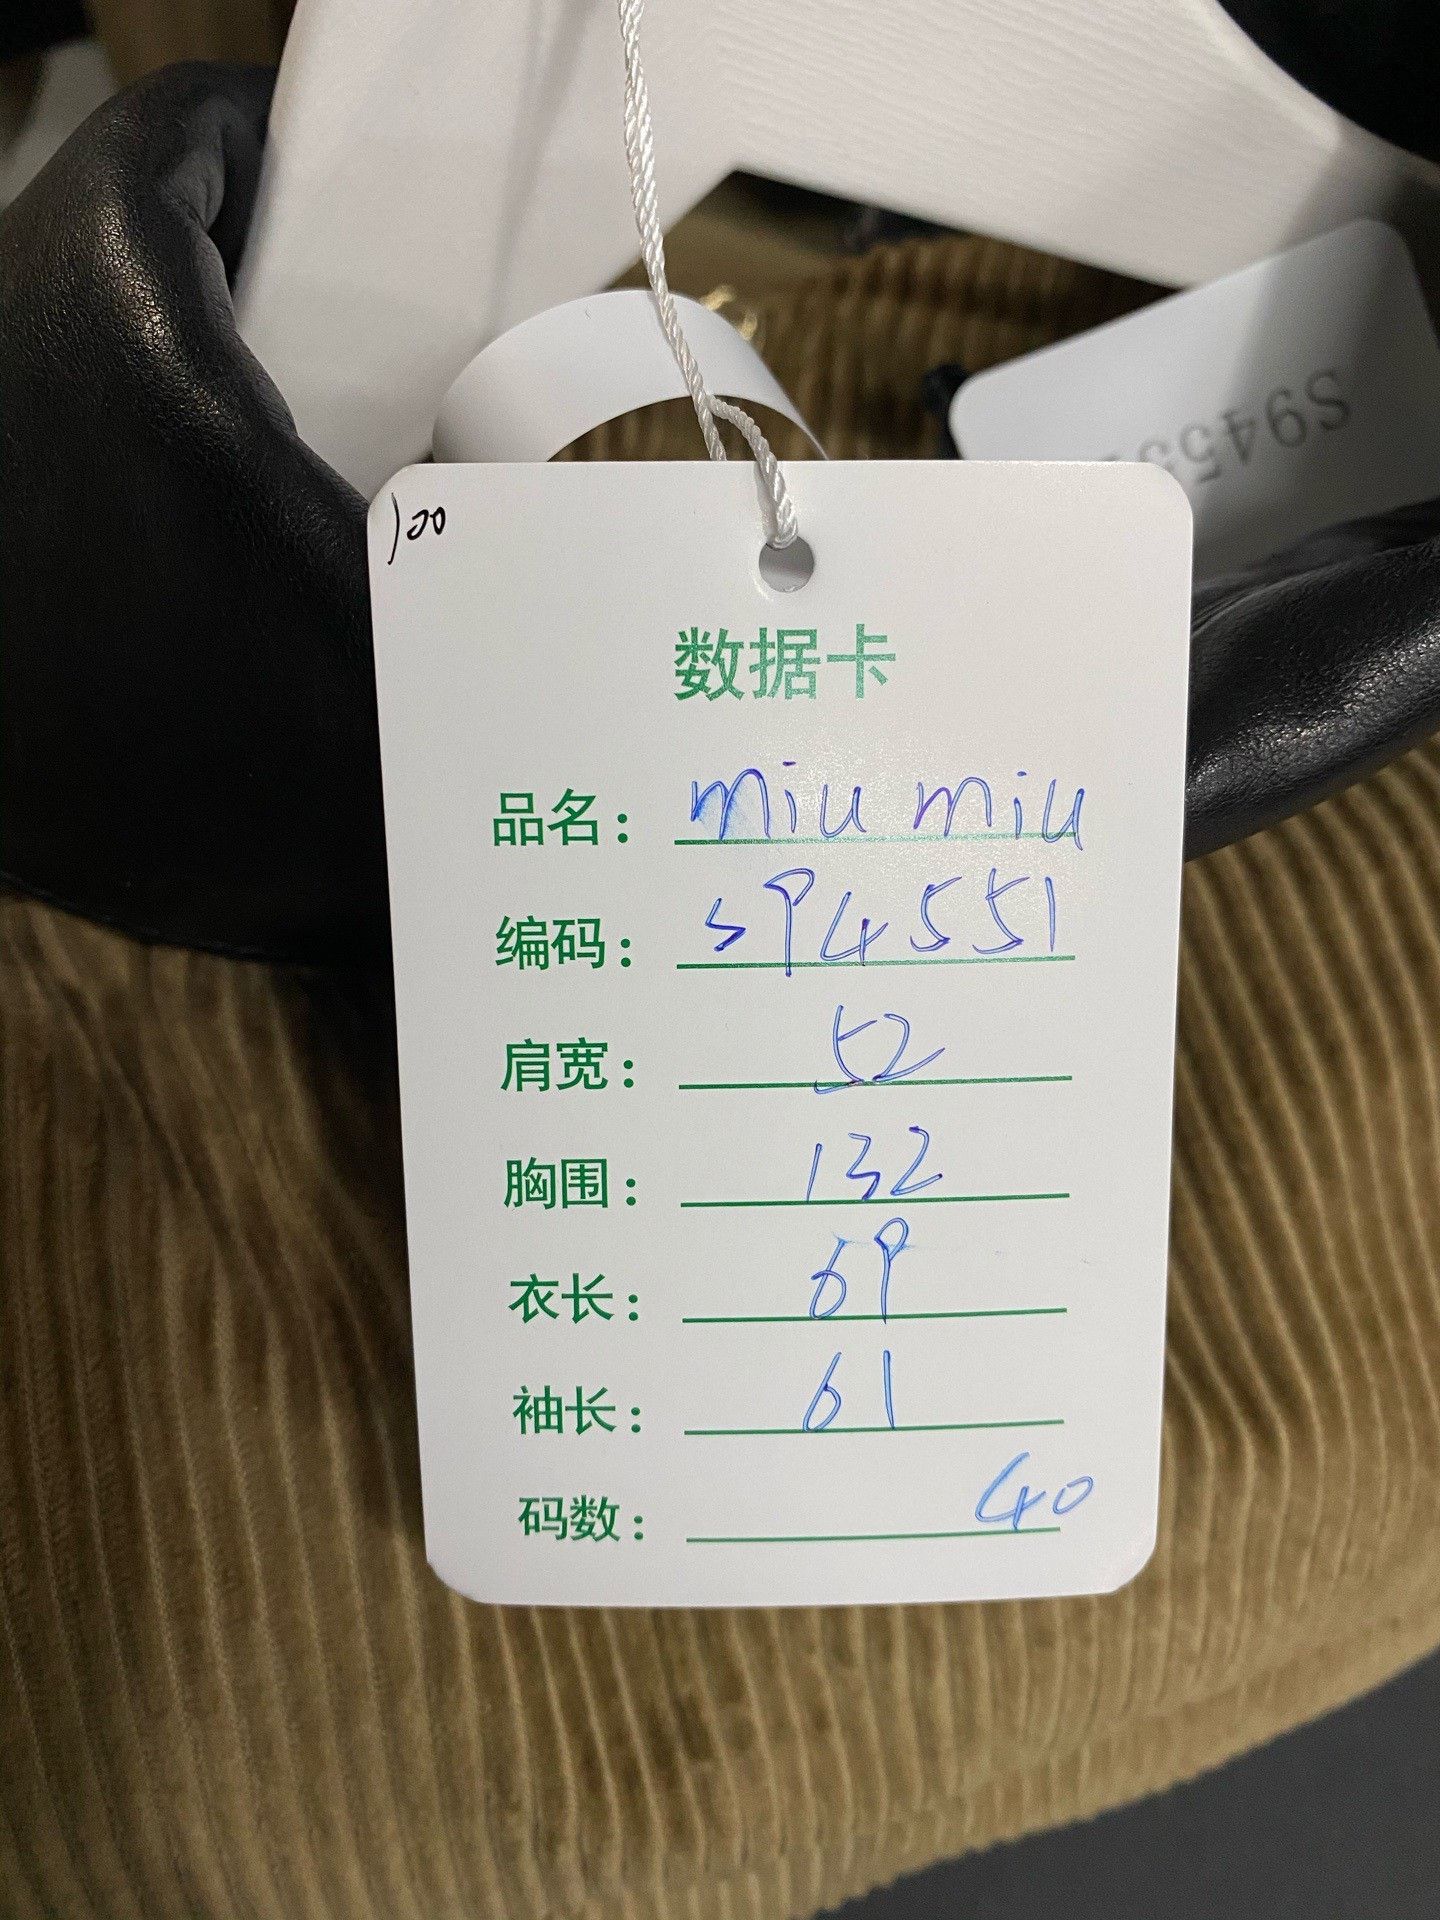 S9455
100
数据卡
品名: miu miu
编码: S94551
肩宽: 52
胸围: 132
衣长: 69
袖长: 61
码数: 40